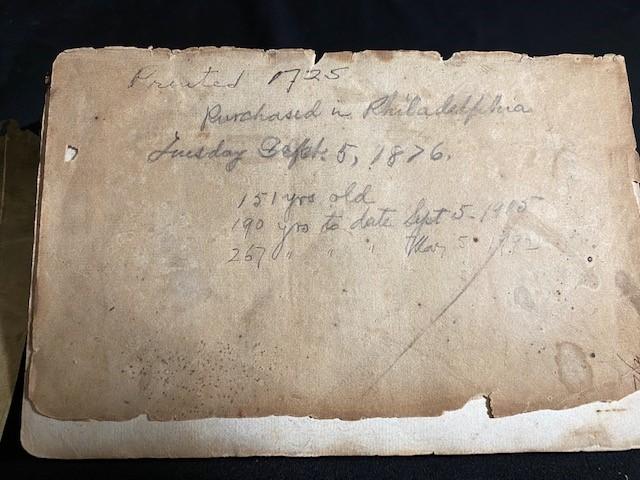 Printed 1725
Purchased in Philadelphia
Tuesday Sept. 5, 1876.
151 yrs old
190 yrs to date Sept 5-1915
267 " " " Mar 5 1992